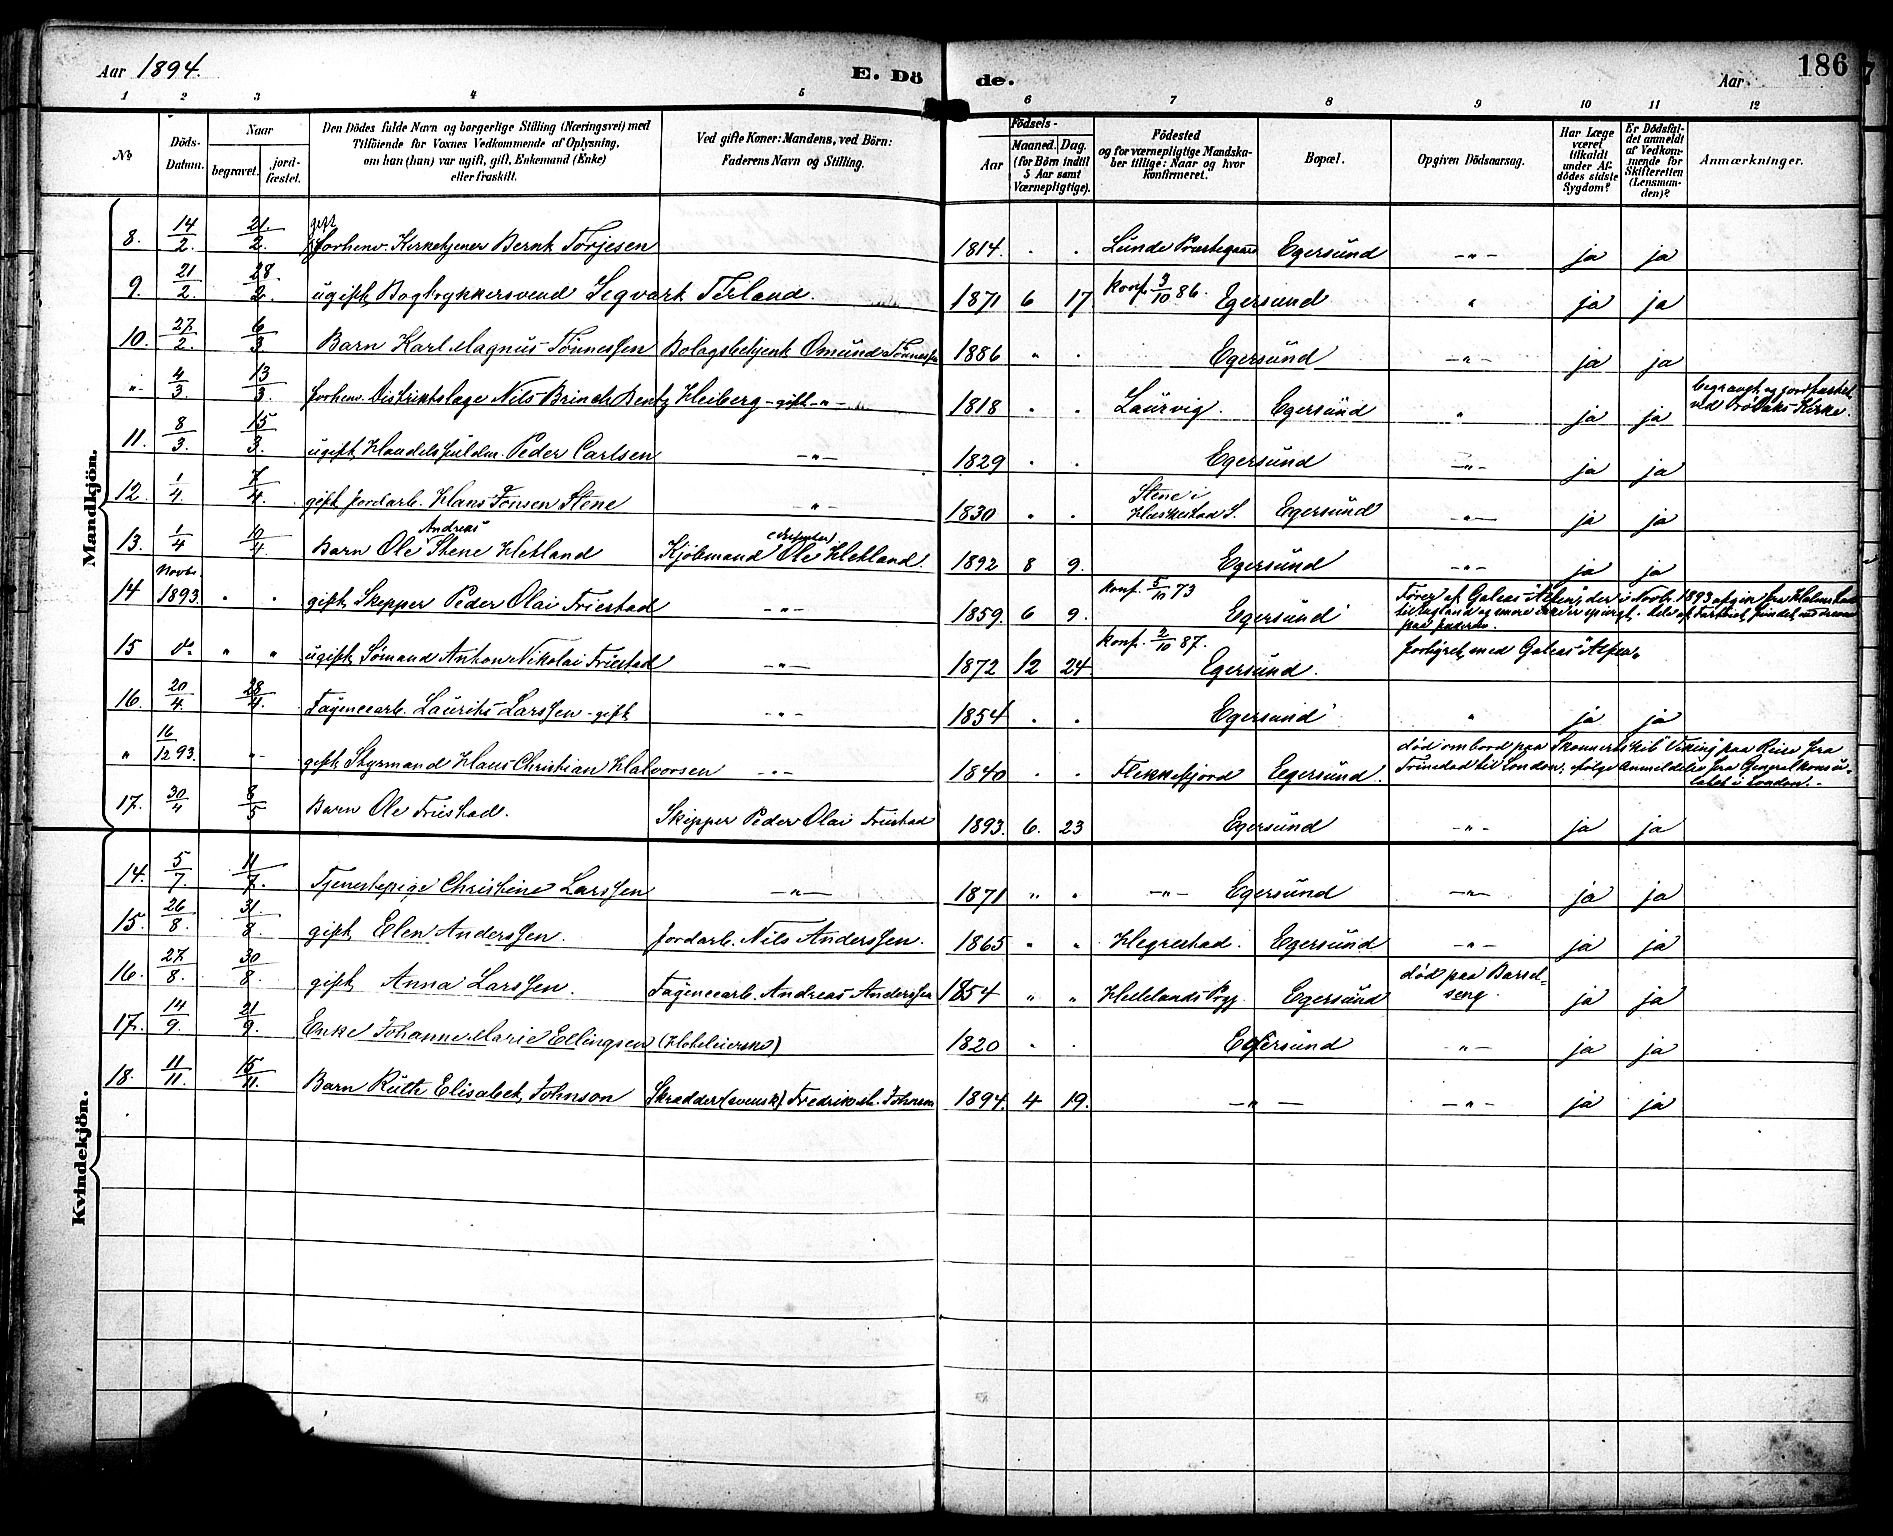 Aar 1894. E. Dö de. Aar 186
1 2 3 4 5 6 7 8 9 10 11 12
No Döds-Datum. Naar begravet. jord-fæstet. Den Dödes fulde Navn og borgerlige Stilling (Næringsvei) med Tilföiende for Voxnes Vedkommende af Oplysning, om han (hun) var ugift, gift, Enkemand (Enke) eller fraskilt. Ved gifte Koner: Mandens, ved Börn: Faderens Navn og Stilling. Födsels- Aar Maaned. Dag. (for Börn indtil 5 Aar samt Værnepligtige). Födested og for værnepligtige Mandskaber tillige: Naar og hvor Konfirmeret. Bopæl. Opgiven Dödsaarsag. Har Læge været tilkaldt under Afdödes sidste Sygdom? Er Dödsfaldet anmeldt af Vedkommende for Skifteretten (Lensmanden)? Anmærkninger.
Mandkjön.
8. 14/2. 21./2. gift forhenv. Kirketjener Bernt Torjesen 1814. Lunde Præstegaard Egersund -"- ja ja
9. 21/2. 28./2. ugift Bogtrykkersvend Segvart Terland. 1871 6 17. konf. 3/10 86. Egersund " ja ja
10. 27/2. 6/3 Barn Karl Magnus Tönnessen Bolagsbetjent Omund Tönnessen 1886 " . Egersund -"- ja ja
-"- 4/3 13/3. forhenv. Distriktslæge Nils Brinch Bentz Heiberg - gift -"- 1818 . . Laurvig. Egersund " ja ja begravet og jordfæstet ved Kirke.
11. 8/3. 15/3. ugift Handelsfuldm. Peder Carlsen -"- 1829 . . Egersund -"- ja ja
12. 1/4. 7/4. gift Jordarb. Hans Tonsen Stene -"- 1830 " . Stene i Heskestad S. Egersund -"- ja ja
13. 1/4 10/4. Barn Ole Andreas Stene Hetland Kjöbmand Ole Hetland. 1892 8 9. Egersund -"- ja ja
14 Novbr. 1893. " " gift Skipper Peder Olai Friestad -"- 1859. 6 9. konf. 5/10 73 Egersund Förer af Galeas "Alpen", der i Novbr. 1893 afgik fra
til England og
15 do. " " ugift Sömand Anton Nikolai Friestad -"- 1872 12 24. konf. 2/10 87. Egersund. forligt med Galeas "Alpen"
16. 20/4. 28/4. Fayencearb. Laurits Larssen - gift -"- 1854 . . Egersund " ja ja
" 16/12 93. "- gift Styrmand Hans Christian Halvorsen -"- 1840 . . Flekkefjord Egersund. död ombord paa Skonnertskib "Viking" paa Reise fra
Trinidad til London, ifölge Anmeldelse fra Generalkonsulatet i London. -
17. 30/4 8/5 Barn Ole Friestad. Skipper Peder Olai Friestad 1893. 6. 23 Egersund -"- ja ja
Kvindekjön.
14. 5/7. 11/7. Tjenestepige Christine Larssen -"- 1871 " " -"- Egersund -"- ja ja
15. 26/8. 31/8 gift Elen Anderssen. Jordarb. Nils Anderssen. 1865 " " Hegrestad. Egersund -"- ja ja
16. 27/8. 30/8. gift Anna Larssen. Fayencearb. Andreas Anderssen 1854 " " Egersund död paa Barselseng. ja ja
17. 14/9. 21/9. Enke Johanne Marie Ellingsen (Hoteleierske) 1820 . . Egersund -"- ja ja
18. 11/11. 15/11. Barn Ruth Elisabet Johnson Skrædder (svensk) Fredrik Johnson 1894. 4 19. -"- -"- ja ja